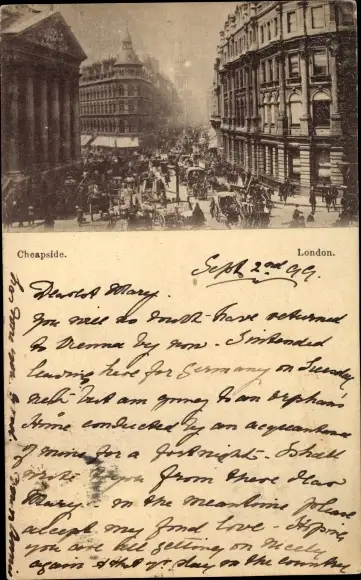 Cheapside.
London.
Sept 2nd 99.
Dearest Mary.
You will no doubt have returned
to Vienna by now. I intended
leaving here for Germany on Tuesday
next but am going to an orphan's
Home conducted by an acquaintance
of mine for a fortnight. I shall
write you from there dear
Mary - in the meantime please
accept my fond love - Hoping
you are all getting on nicely
again & that yr stay in the country